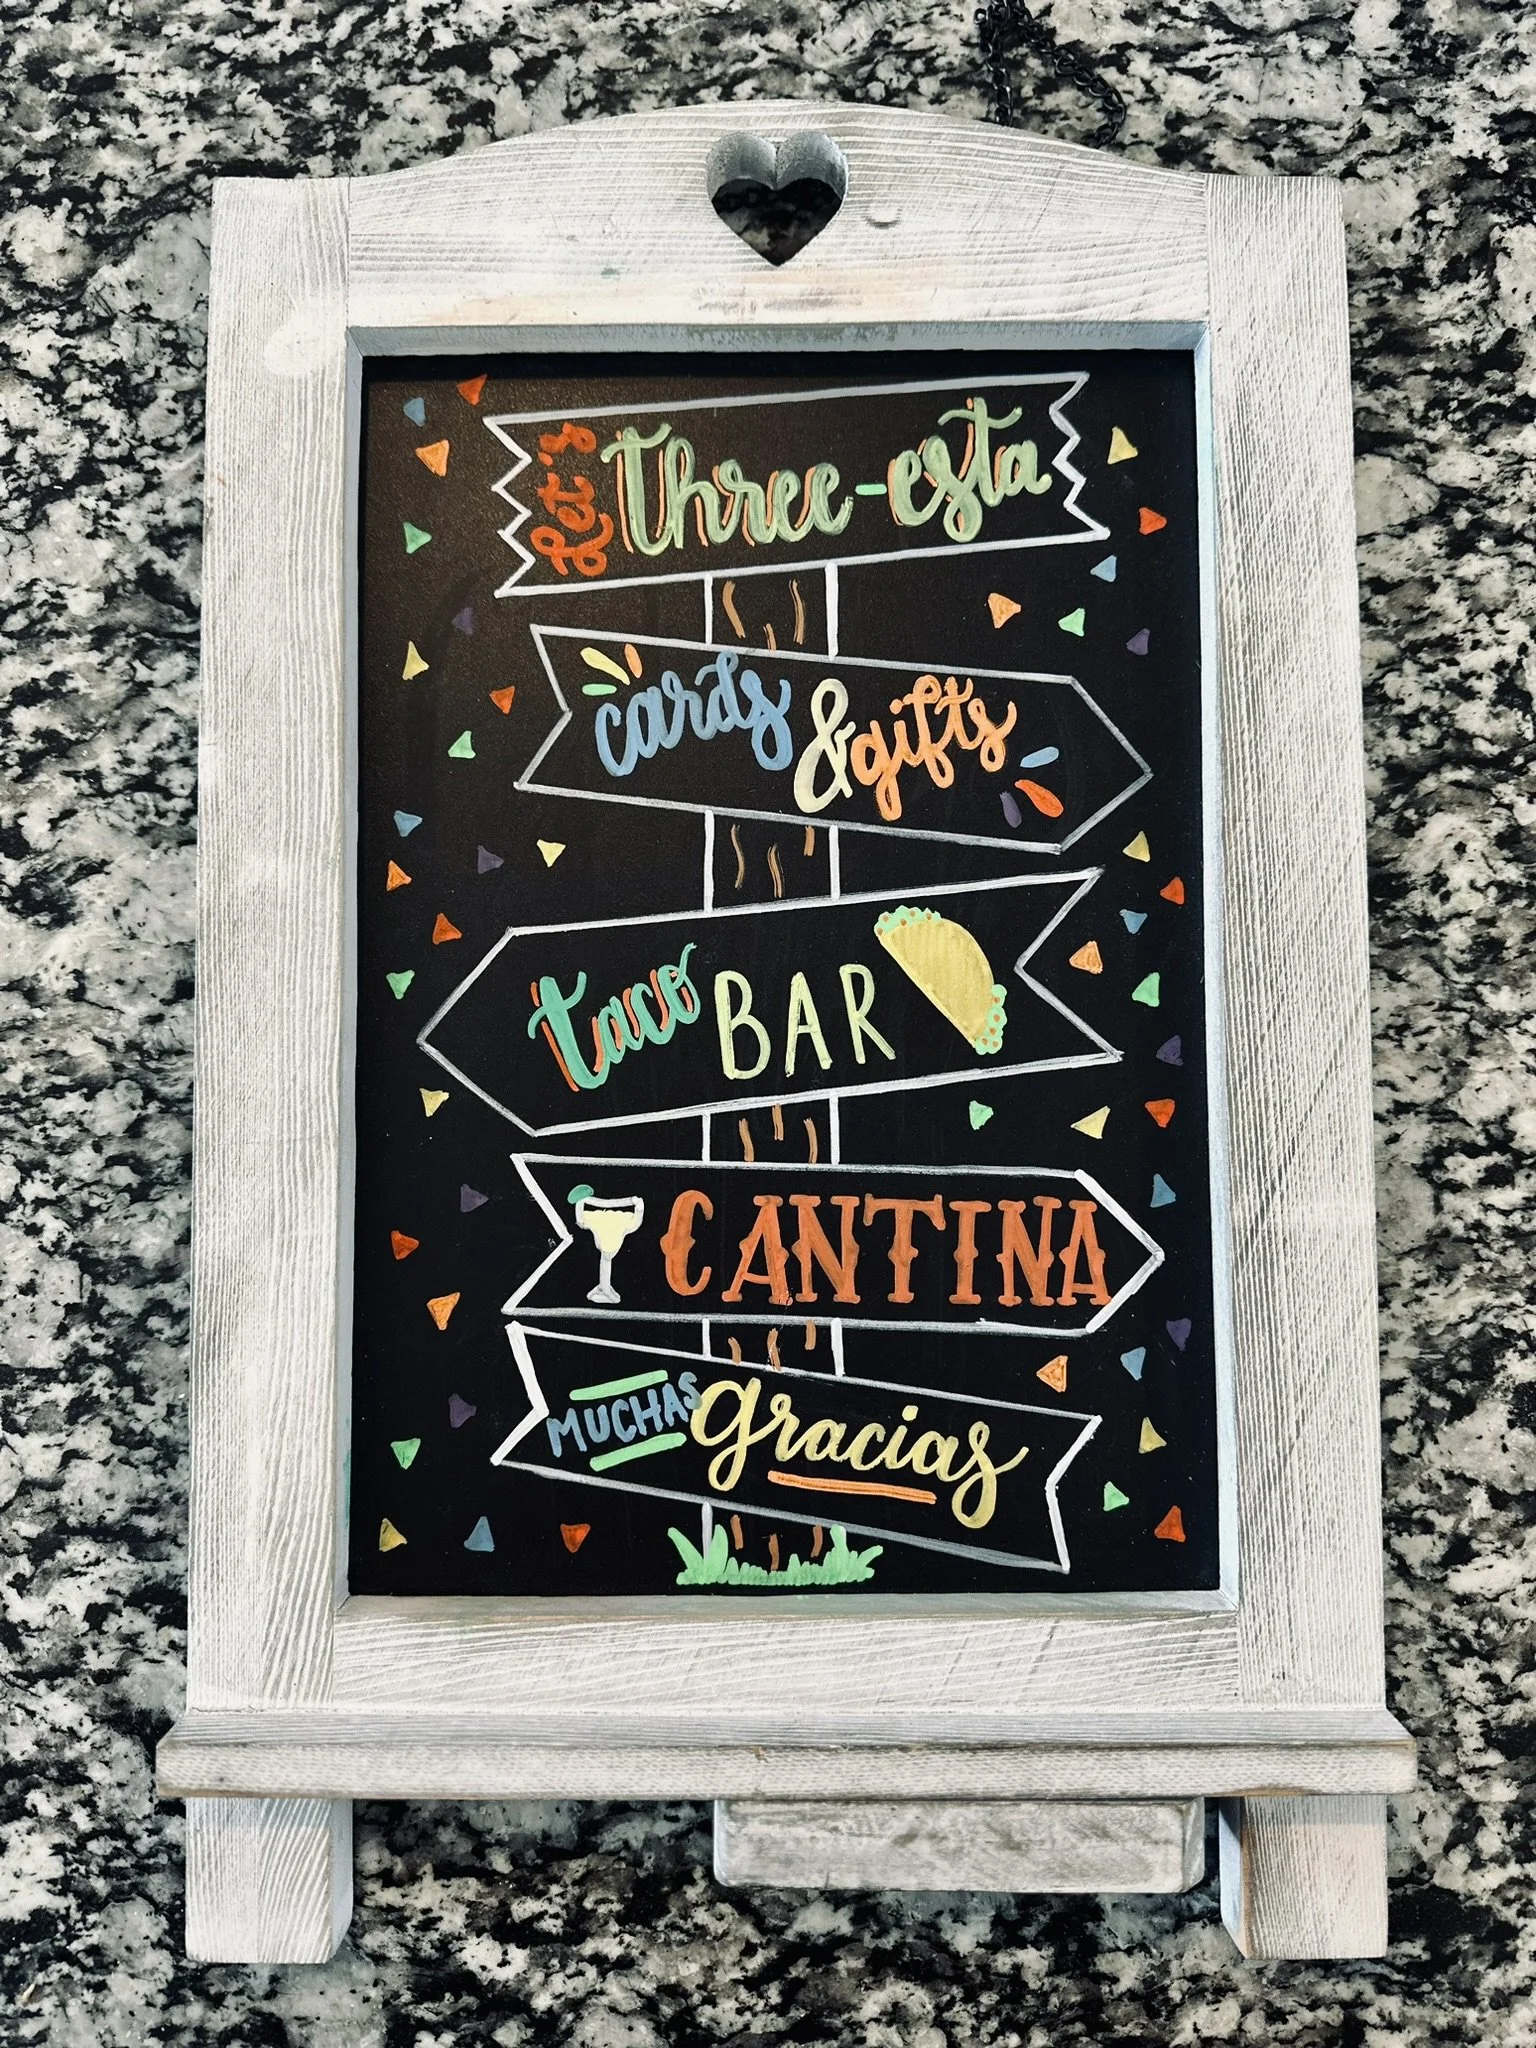 Let's three-esta
cards & gifts
taco BAR
CANTINA
MUCHAS gracias